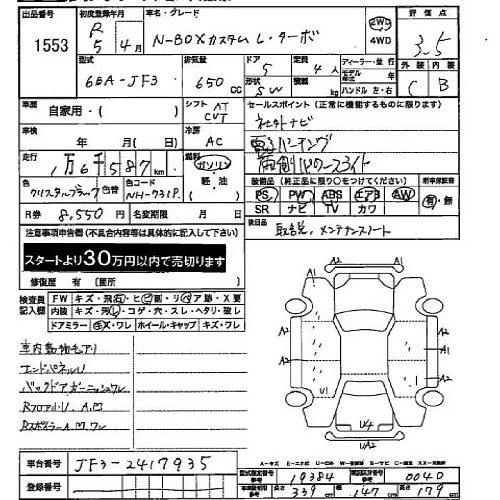 出品番号
1553
初度登録年月
R 5年 4月
車名・グレード
N-BOXカスタム L・ターボ
2WD
4WD
評価点
3.5
型式
6BA-JF3
排気量
650 CC
ドア
5
形状
SW
定員
4人
ディーラー・並行
モデル年式 年
ハンドル 左・右
外装
C
内装
B
車歴
自家用・( )
シフト
AT
CVT
セールスポイント (正常に機能するものに限り)
社外ナビ
電子パーキング
両側パワースライド
車検
年 月( )日
冷房
AC
走行
1万6千587km
燃料
ガソリン
軽油
( )
装備品 (純正品に限り○をつけてください)
PS PW ABS エアB AW
SR ナビ TV カワ
新車保証書
有・無
色
クリスタルブラック
色替
色コード
NH-731P
R券 8,550円
名変期限 月 日
後日品
取説、メンテナンスノート
注意事項申告欄 (不具合内容等は具体的に記入して下さい)
スタートより30万円以内で売切ります
修復歴 有 [箇所 ]
検査員記入欄
FW キズ・飛石・ヒビ・割・リペア跡・X要
内装 キズ・汚レ・コゲ・穴・スレ・ヘタリ・破レ
ドアミラー キズ・ワレ ホイール・キャップ キズ・ワレ
車内動物毛アリ
エンドパネルU
バックドアガーニッシュワレ
RフロアU、A、凹
RスポイラーA、凹、ワレ
A2
A1
A2
A2
A1
A2
A2
U1
A1
U4
UA2
A-キズ E-エクボ U-凹 W-補修跡 S-サビ C-腐食 X-要交換
車台番号
JF3-2417935
登録番号
型式指定番号
19384
類別区分番号
0040
長さ
339 cm
幅
147 cm
高さ
179 cm